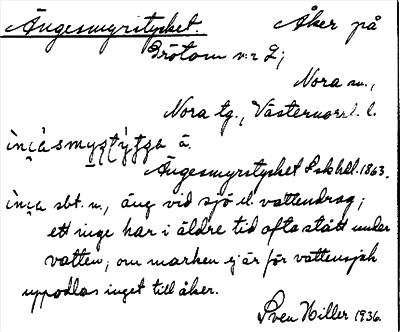 Ängesmyrstycket. Åker på
Grötom n:r 2;
Nora sn.,
Nora tg., Västernorrl. l.
Ängesmyrstycket Lskhdl. 1863.
sbt. n., äng vid sjö el. vattendrag;
ett inge har i äldre tid ofta stått under
vatten; om marken ej är för vattensjuk
uppodlas inget till åker.
Sven Hiller 1936.